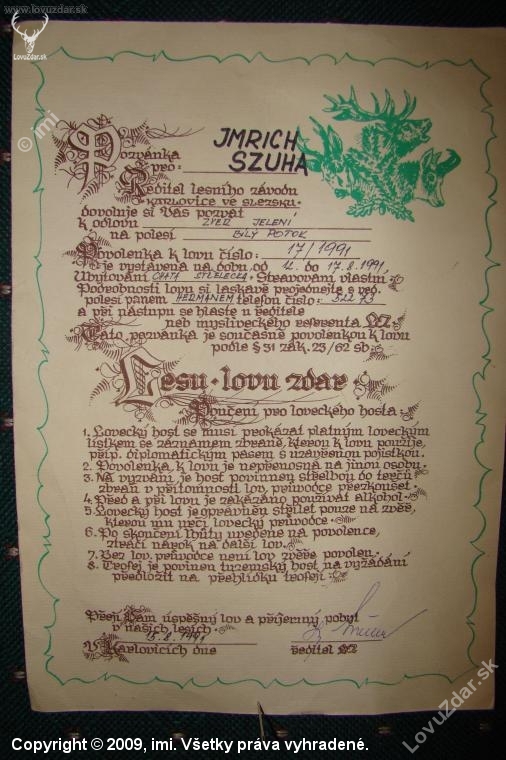 www.lovuzdar.sk
LovuZdar.sk
© imi
Pozvánka
pro: JMRICH
SZUHA
Ředitel lesního závodu
Karlovice ve Slezsku
dovoluje si Vás pozvat
k odlovu ZVĚŘ JELENÍ
na polesí BÍLÝ POTOK
Povolenka k lovu číslo: 17/1991
je vystavena na dobu od 12. do 17.8.1991,
Ubytování CHATA STŘELECKÁ. Stravování vlastní
Podrobnosti lovu si laskavě projednejte s ved.
polesí panem HEŘMANEM telefon číslo: 522 73
a při nástupu se hlaste u ředitele
neb mysliveckého referenta LZ.
Tato pozvánka je současně povolenkou k lovu
podle § 31 zák. 23/62 sb.
Lesu · lovu zdar
Poučení pro loveckého hosta:
1. Lovecký host se musí prokázat platným loveckým
lístkem se záznamem zbraně, kterou k lovu použije,
příp. diplomatickým pasem s uzavřenou pojistkou.
2. Povolenka k lovu je nepřenosná na jinou osobu.
3. Na vyzvání je host povinnen střelbou do terčů
zbraň v přítomnosti lov. průvodce přezkoušet.
4. Před a při lovu je zakázáno používat alkohol.
5. Lovecký host je oprávněn střílet pouze na zvěř,
kterou mu určí lovecký průvodce.
6. Po skončení lhůty uvedené na povolence,
ztrácí nárok na další lov.
7. Bez lov. průvodce není lov zvěře povolen.
8. Trofej je povinen tuzemský host na vyžádání
předložit na přehlídku trofejí.
Přeji Vám úspěšný lov a příjemný pobyt
v našich lesích.
V Karlovicích dne 15.8.1991
ředitel LZ
LovuZdar.sk
Copyright © 2009, imi. Všetky práva vyhradené.